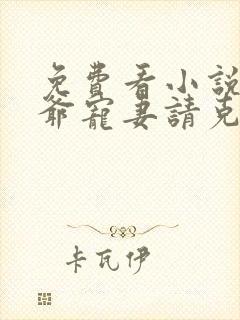 免費看小說
爺寵妻請克
卡瓦伊